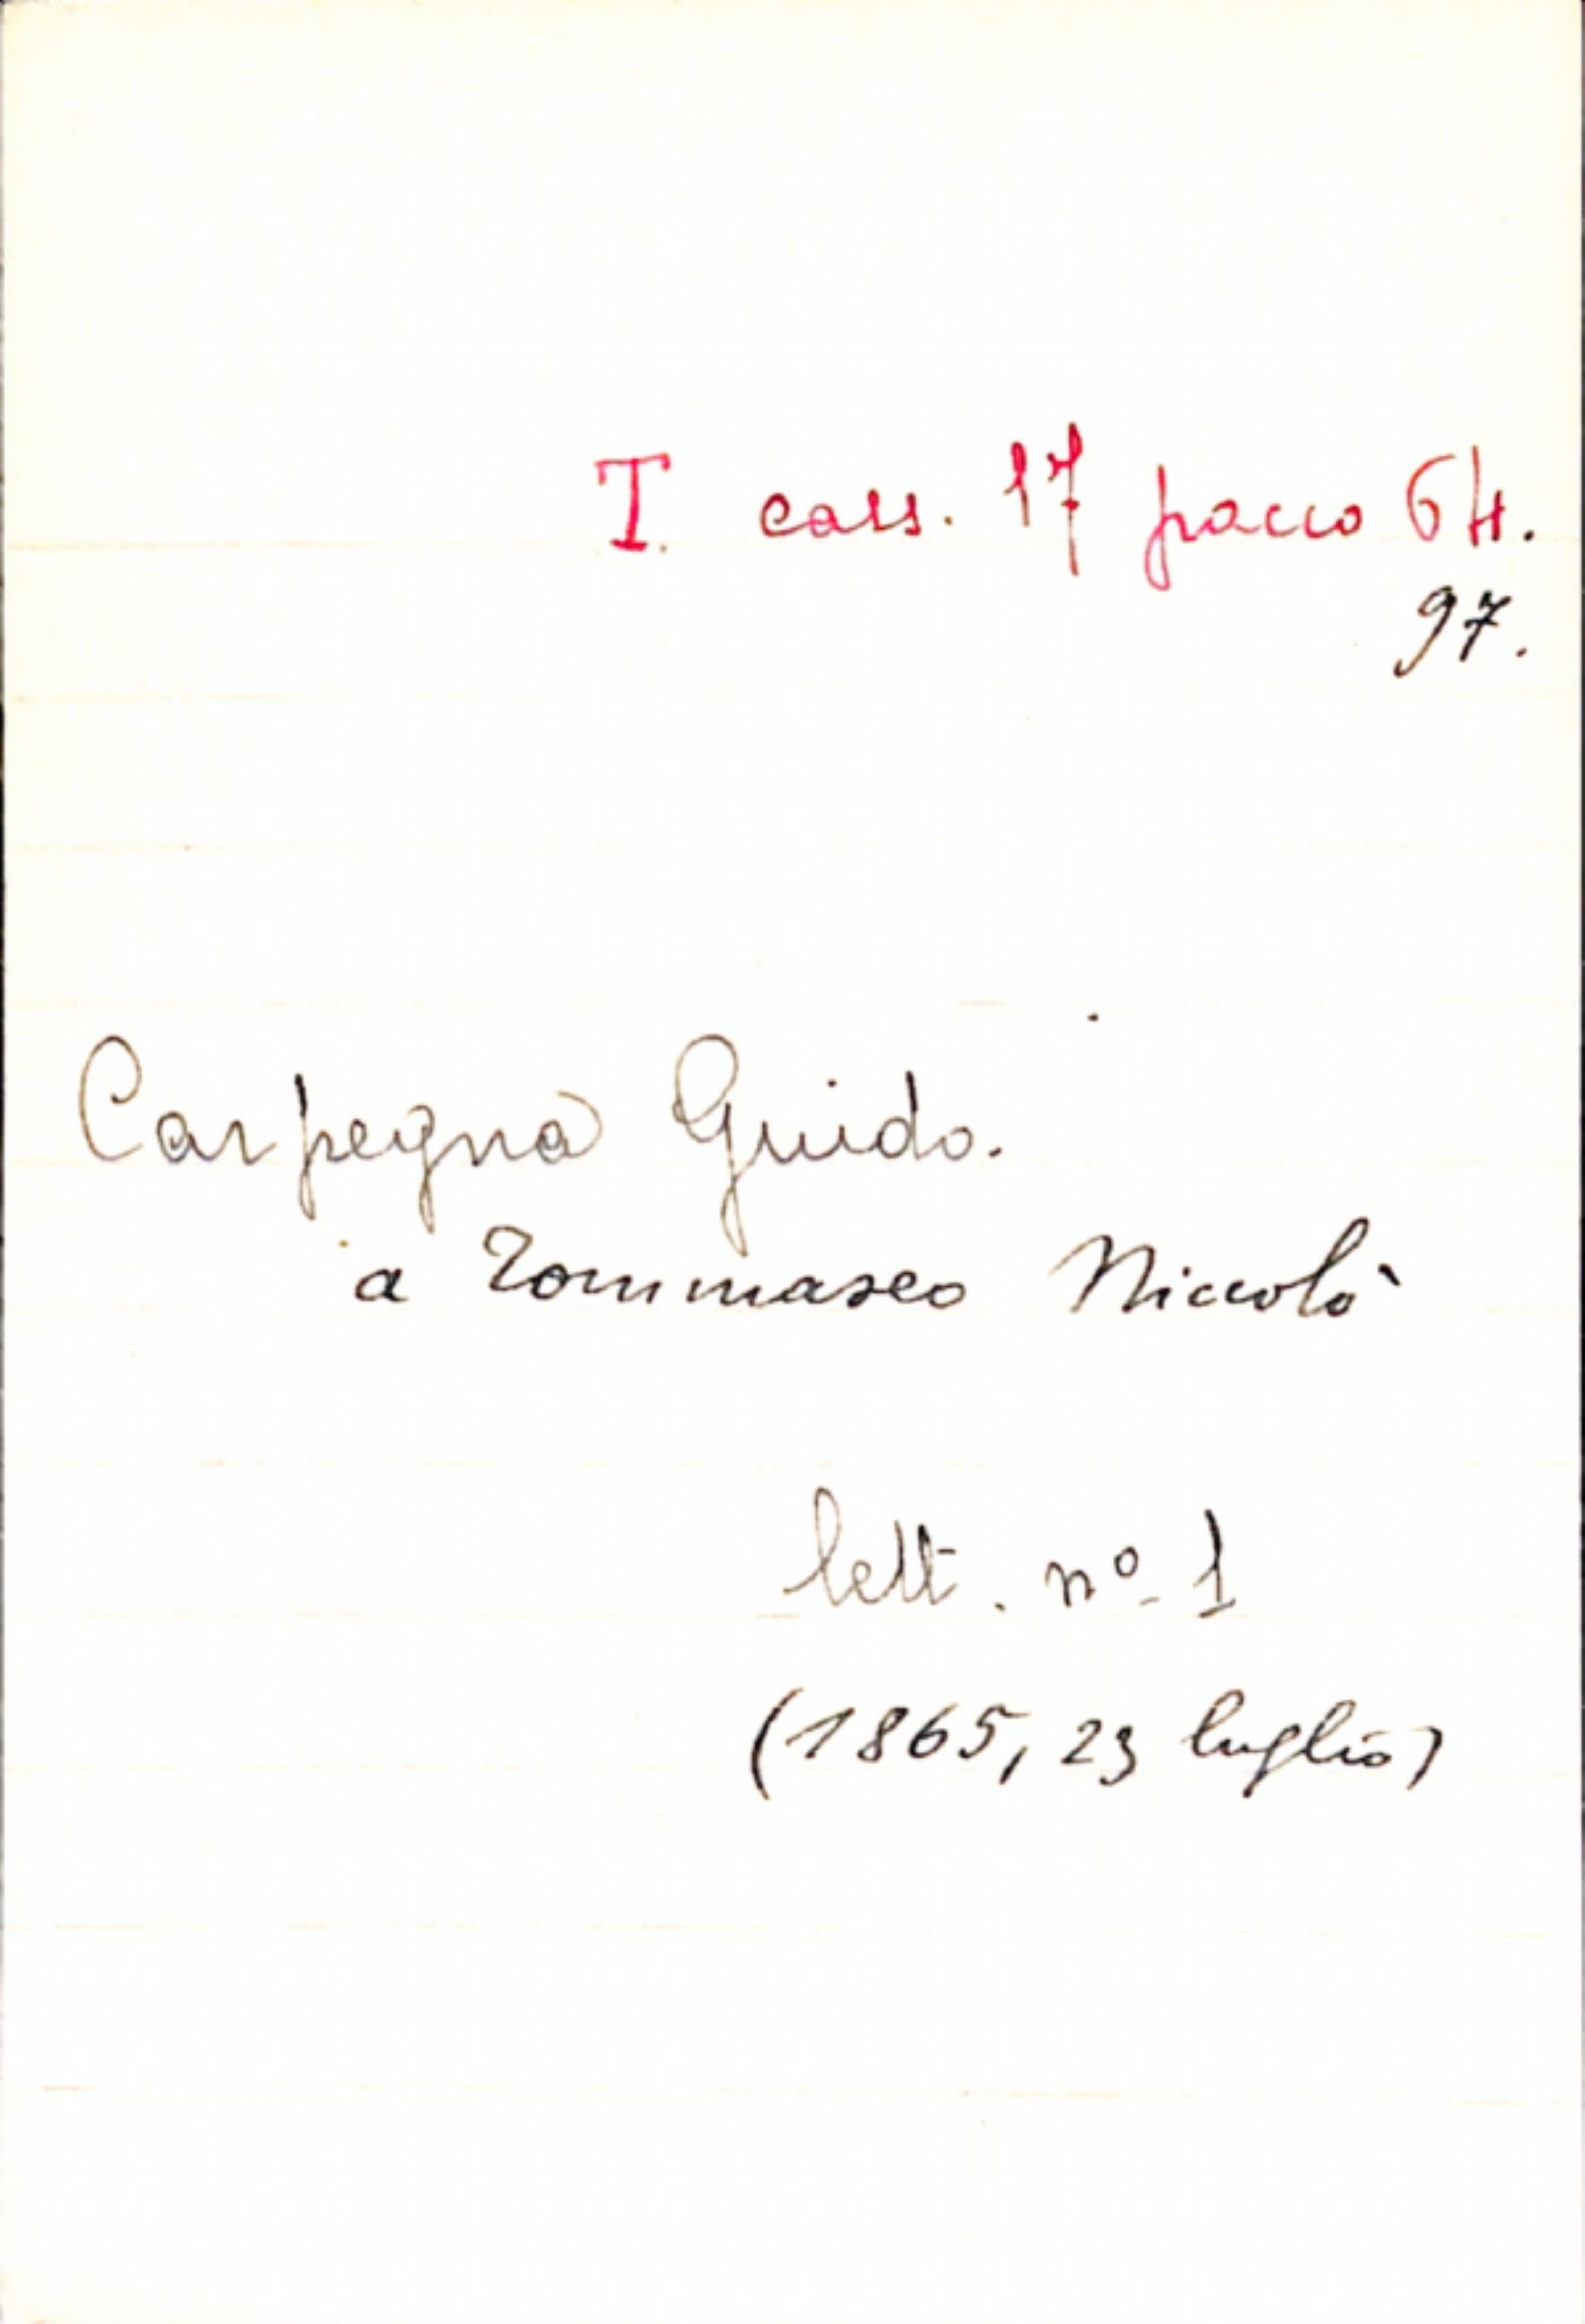 T. cass. 17 pacco 64.
97.
Carpegna Guido.
a Tommaseo Niccolò
lett. nº 1
(1865, 23 luglio)